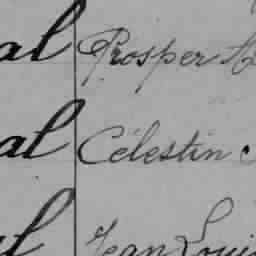 al Prosper
al Célestin
al Jean Loui